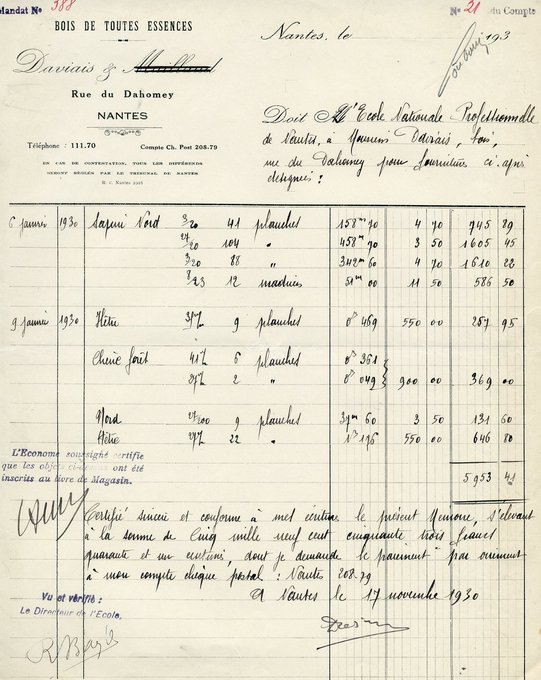 Mandat No 388
No 21 du Compte
BOIS DE TOUTES ESSENCES
Nantes, le 193
Daviais &
Rue du Dahomey
NANTES
Téléphone : 111.70 Compte Ch. Post 208.79
EN CAS DE CONTESTATION, TOUS LES DIFFÉRENDS
SERONT RÉGLÉS PAR LE TRIBUNAL DE NANTES
R. C. Nantes
Doit l'Ecole Nationale Professionnelle
de Nantes, à Monsieur Daviais, bois,
rue du Dahomey pour fournitures ci-après
désignées :
6 janvier 1930 Sapin Nord 3/20 41 planches 158m 70 4 70 745 89
27/20 104 " 458m 70 3 50 1605 45
3/20 88 " 342m 60 4 70 1610 22
8/23 12 madriers 51m 00 11 50 586 50
9 janvier 1930 Hêtre 9 planches 0 469 550 00 257 95
Chêne forêt 6 planches 0 361
2 " 0 049 900 00 369 00
Nord 9 planches 37m 60 3 50 131 60
Hêtre 22 " 1 176 550 00 646 80
5953 41
L'Econome soussigné certifie
que les objets ci-dessus ont été
inscrits au livre de Magasin.
Certifié sincère et conforme à mes écritures le présent Mémoire, s'élevant
à la somme de Cinq mille neuf cent cinquante trois francs
quarante et un centimes, dont je demande le paiement par virement
à mon compte chèque postal : Nantes 208.79
A Nantes le 17 novembre 1930
Vu et vérifié :
Le Directeur de l'Ecole,